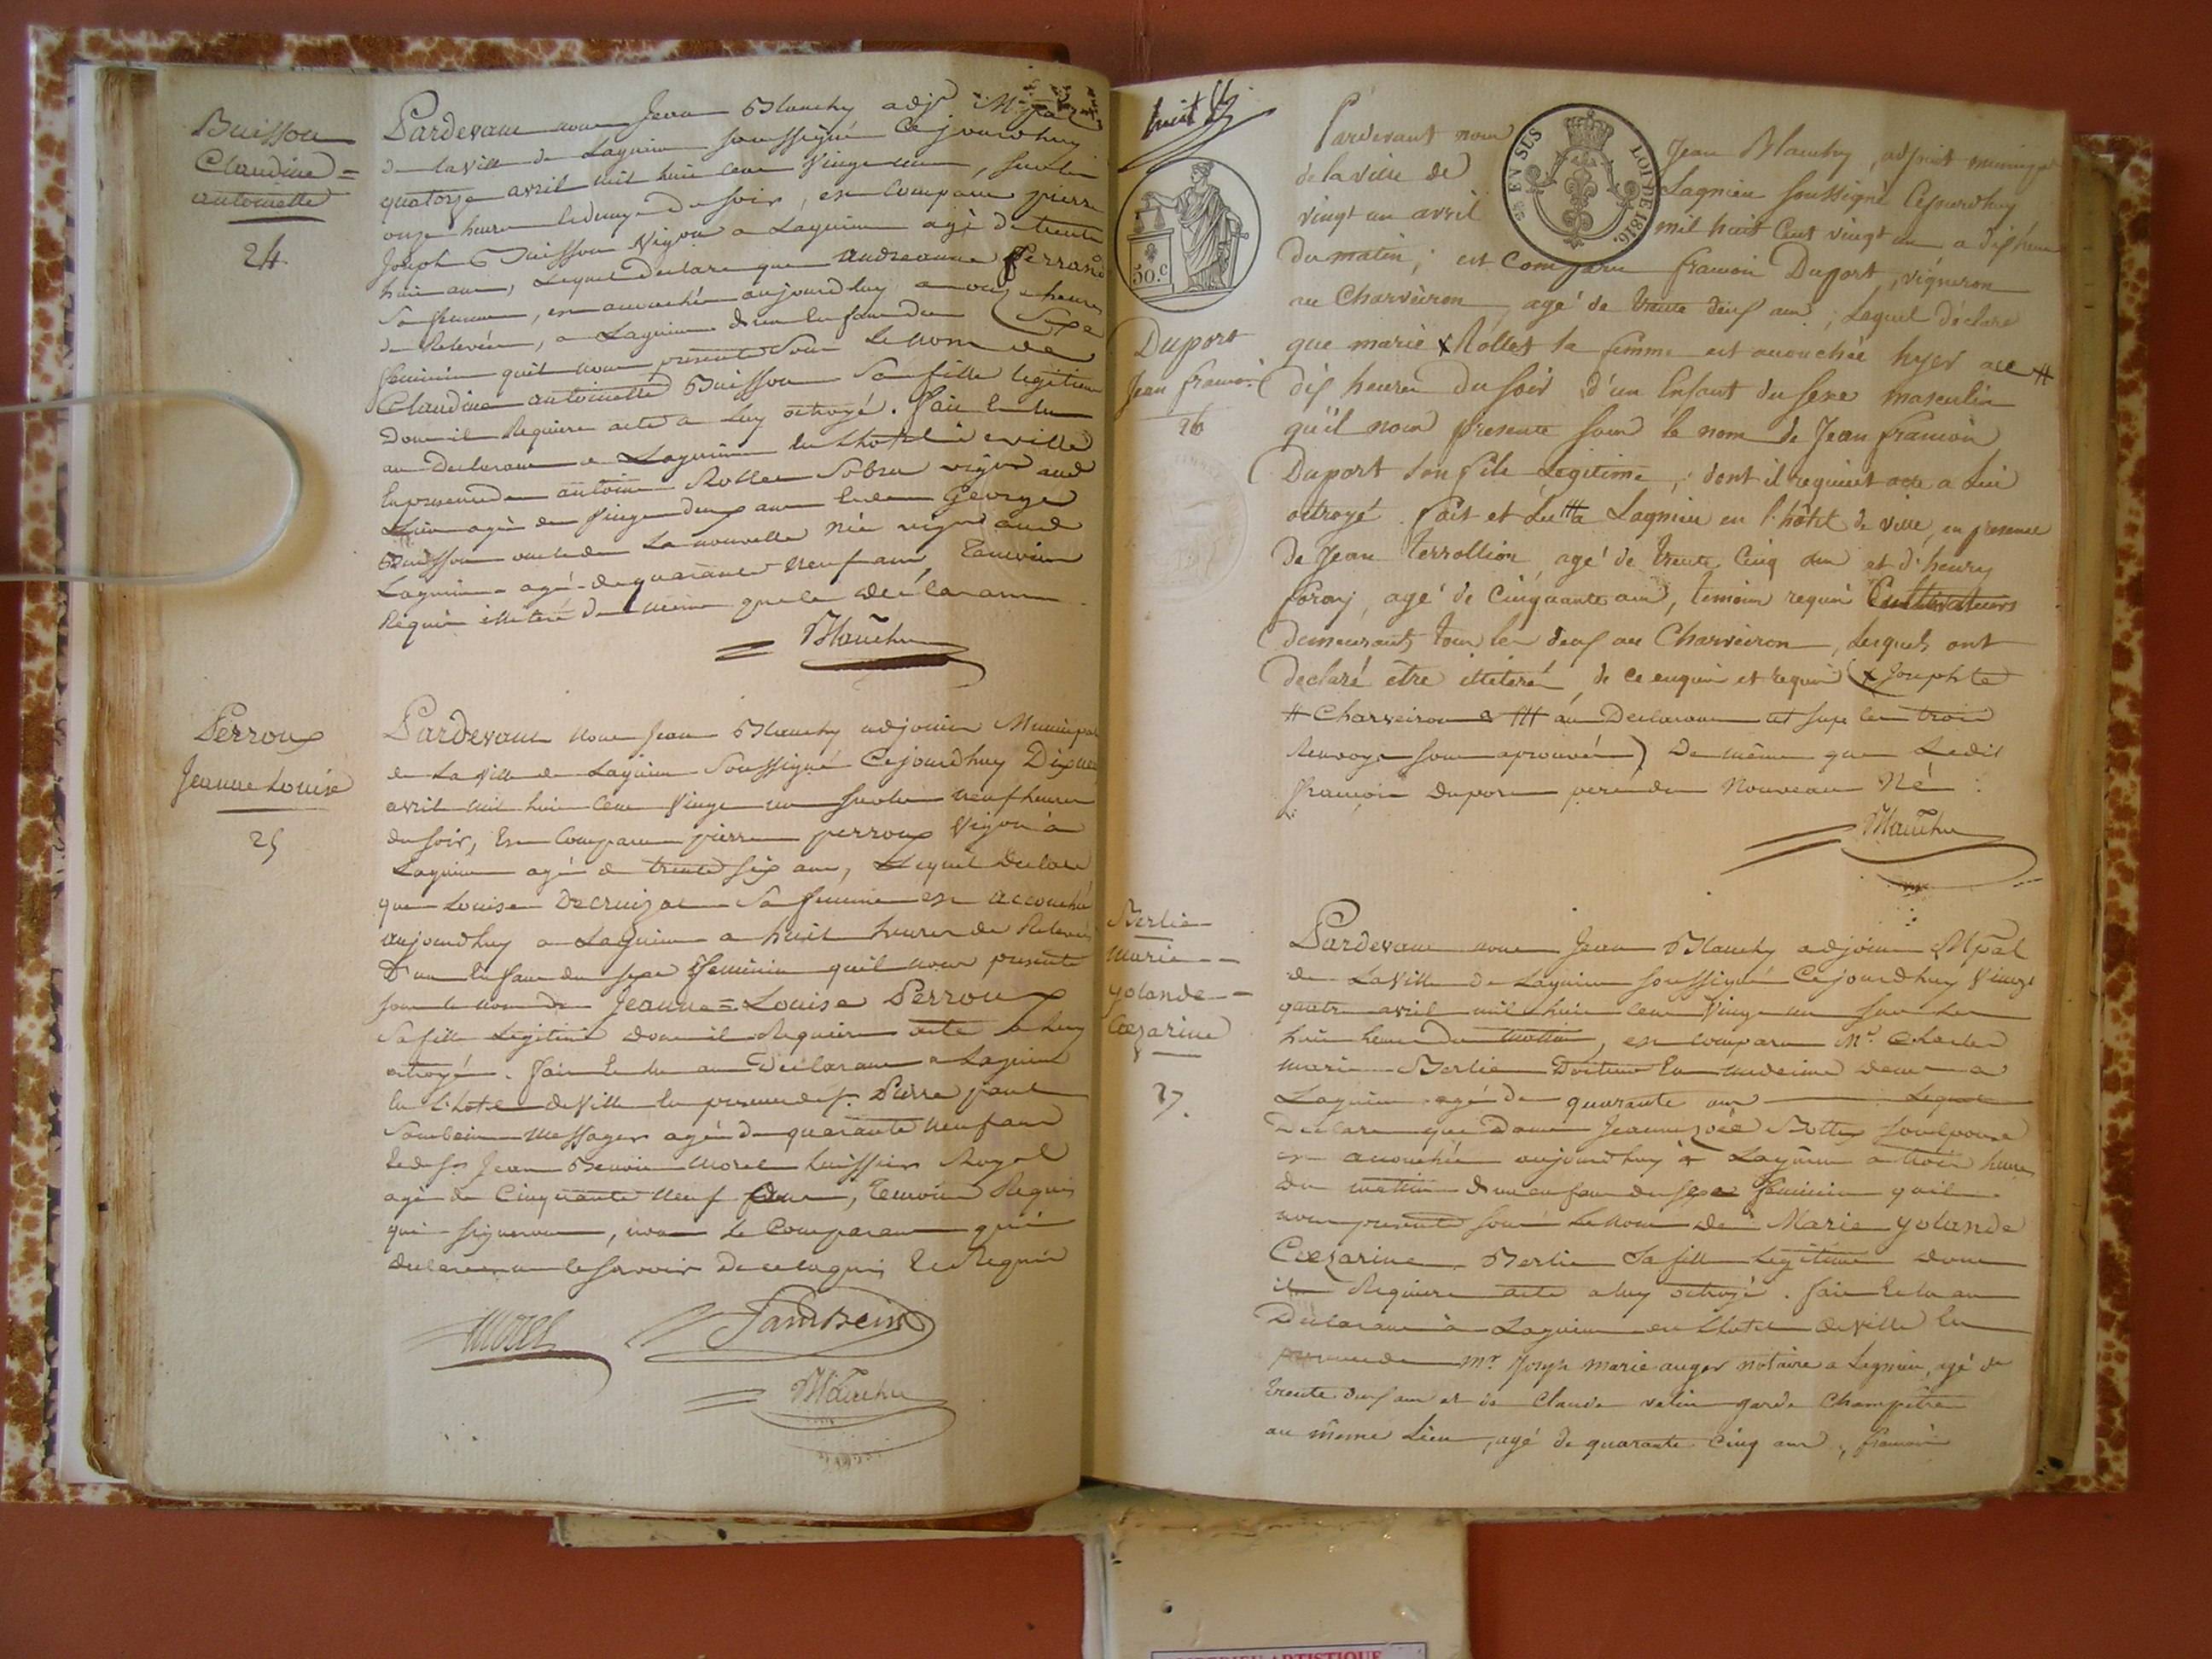 Buisson
Claudine =
antoinette
24.
Pardevant nous Jean Blanchy adjt Mpal
de la ville de Lagnieu soussigné Cejourdhuy
quatorze avril mil huit cent vingt un, sur les
onze heures du soir, est comparu pierre
Joseph Buisson Vigon a Lagnieu agé de trente
huit ans, Lequel declare que andréanne ferrand
Sa femme, est accouchée aujourdhuy a onze heures
de Relevée, a Lagnieu d'un Enfant du Sexe
feminin quil nous présente Sous le nom de
Claudine antoinette Buisson Sa fille legitime
Dont il Requiert acte a Luy octroyé. fait et lu
au Declarant a Lagnieu en l'hotel de ville
En presence de antoine Rollet vigon aud
Lieu agé de vingt deux ans et de George
Buisson oncle de La nouvelle née vigon aud
Lagnieu agé de quarante neuf ans, temoins
Requis illiteré de même que le declarant
= Blanchy
Perroux
Jeanne Louise
25
Pardevant nous Jean Blanchy adjoint Municipal
de La Ville de Lagnieu Soussigné Cejourdhuy Dix neuf
avril mil huit Cent Vingt un sur les neuf heures
du soir, Est Comparu pierre perroux Vigon a
Lagnieu agé de trente six ans, Lequel Declare
que Louise Decruizat Sa femme est accouchée
aujourdhuy a Lagnieu a huit heures de Relevée
D'un Enfant du sexe feminin quil nous presente
sous le nom de Jeanne = Louise Perroux
Sa fille Legitime dont il Requiert acte a Luy
octroyé. fait et lu au Déclarant a Lagnieu
En l'hotel de Ville En presence de sr. Pierre paul
Sambein Messager agé de quarante neuf ans
et de sr Jean Benoit Morel huissier Royal
agé de Cinquante neuf ans, temoins Requis
qui signeront, non le Comparant qui
declare ne le savoir de ce enquis et Requis
Morel Sambein
= Blanchy
huit
EN SUS LOI DE 1816.
50.c
Duport
Jean francois
26
Pardevant nous Jean Blanchy, adjoint municipal
de la ville de Lagnieu soussigné Cejourdhuy
vingt un avril mil huit Cent vingt un a dix heures
du matin, est Comparu francois Duport, vigneron
au Charveiron, agé de trente deux ans, Lequel déclare
que marie x Rollet sa femme est accouchée hyer au #
dix heures du soir d'un Enfant du sexe masculin
qu'il nous presente sous le nom de Jean francois
Duport son fils Légitime, dont il requiert acte a Lui
octroyé. fait et Lu ttt a Lagnieu en l'hôtel de ville, en presence
de Jean terrollion, agé de trente Cinq ans et d'henry
foray, agé de Cinquante ans, témoins requis Cultivateurs
demeurants tous les deux au Charveiron, Lesquels ont
declaré être illiterés, de ce enquis et requis (x Josephte
# Charveiron a ttt au Declarant et sexe les trois
Renvoys sont aprouvés) De même que Ledit
francois duport pere du Nouveau Né.
Blanchy
Berlie
Marie
yolande
Cœzarine
27.
Pardevant nous Jean Blanchy adjoint Mpal
de LaVille de Lagnieu soussigné Cejourdhuy Vingt
quatre avril mil huit cent Vingt un sur les
huit heures du matin, est comparu Mr. Charles
marie Berlie Docteur En medecine demt a
Lagnieu agé de quarante ans Lequel
Declare que Dame Jeanne zoée Bottex son Epouse
est accouchée aujourdhuy a Lagnieu a trois heures
du matin d'un enfant du sexe feminin quil
nous presente sous Le nom de Marie yolande
Cœzarine Berlie Sa fille Legitime dont
il Requiert acte a luy octroyé. fait et lu au
Déclarant à Lagnieu en l'hotel de Ville En
presence de Mr Joseph marie auger notaire a Lagnieu, agé de
trente deux ans et de Claude velin garde Champêtre
au même Lieu, agé de quarante cinq ans, francois